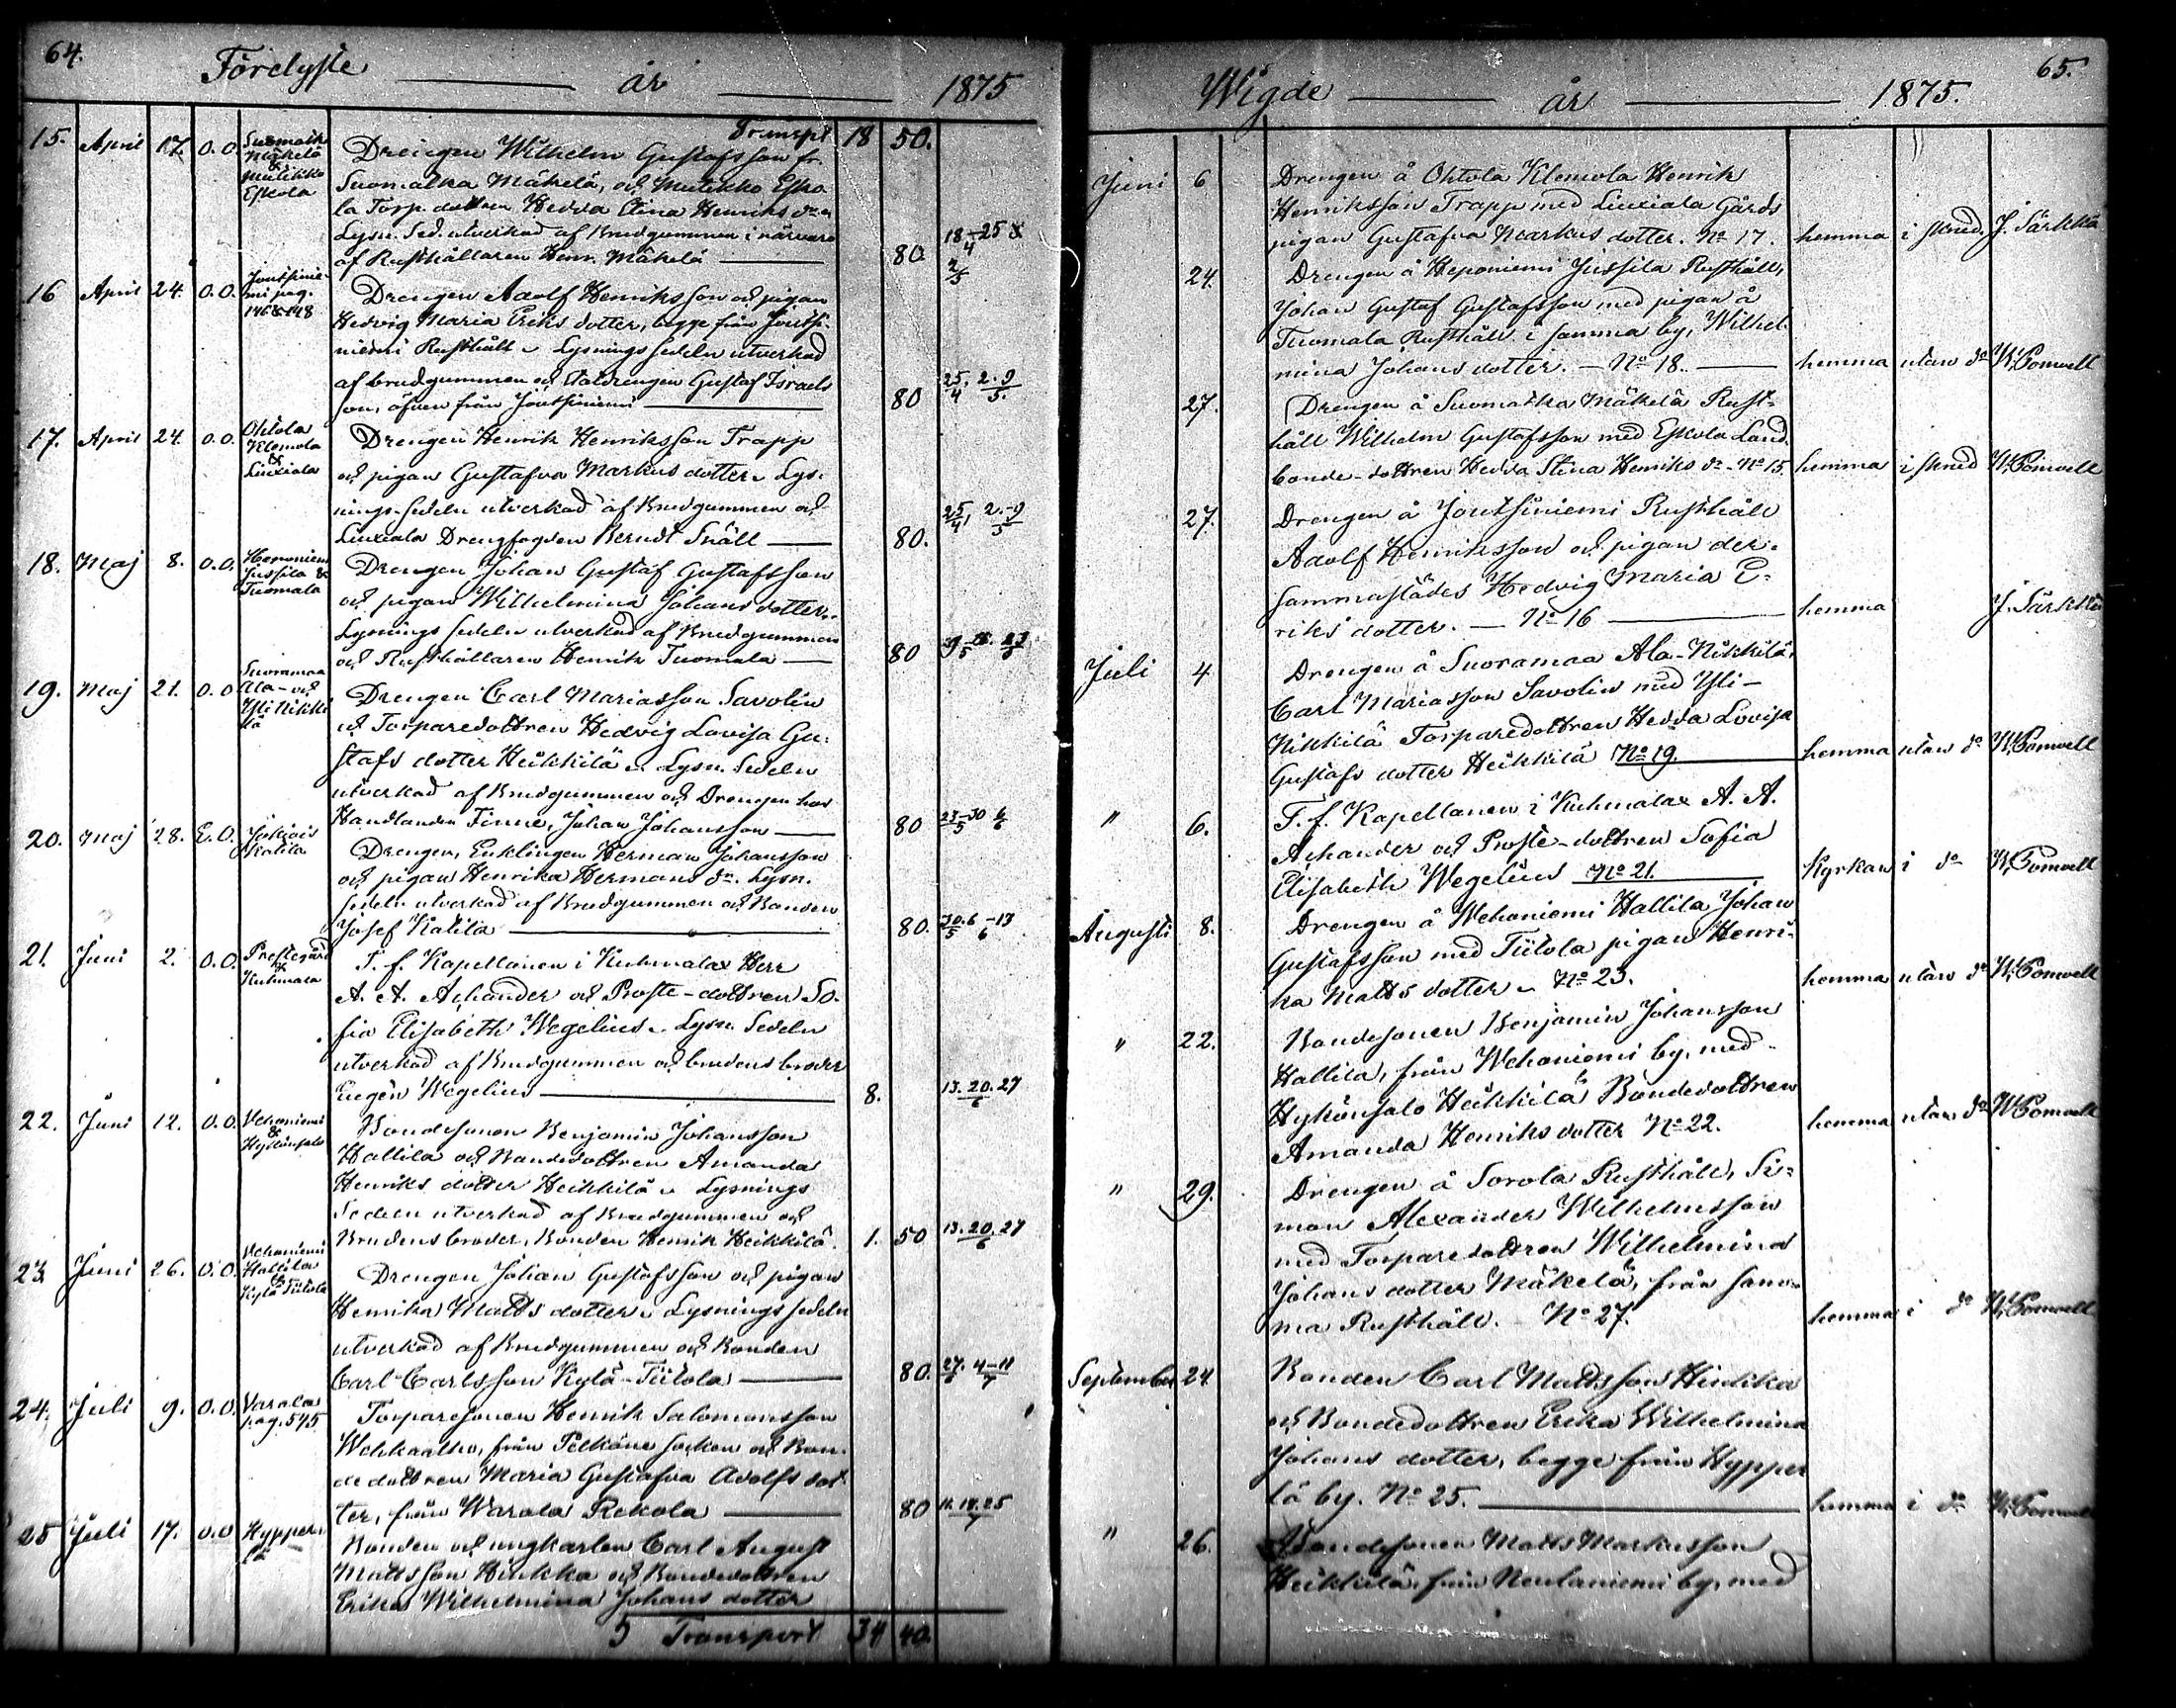 64.
Förelyste år 1875
Transpt 18 50.
15. April 17. O. O. Suomalk Mäkelä & Mulikko Eskola
Drengen Wilhelm Gustafsson fr.
Suomalka Mäkelä, och Mulikko Esko
la Torp. dottren Hedda Stina Henriks dr
Lysn. Sed. utverkad af Brudgummen i närvaro
af Rusthållaren Henr. Mäkelä 80. 18-25/4 & 2/5
16 April 24. O. O. Joutsinie-mi pag. 146 & 148
Drengen Adolf Henriksson och pigan
Hedvig Maria Eriks dotter, begge från Joutsi-
niemi Rusthåll. Lysnings sedeln utverkad
af brudgummen och Stalldrengen Gustaf Israels
son, äfven från Joutsiniemi 80 25/4. 2.9/5.
17. April 24. O. O. Ohtola Klemola & Liuxiala
Drengen Henrik Henriksson Trapp
och pigan Gustafva Markus dotter. Lys-
nings-sedeln utverkad af Brudgummen och
Liuxiala Drengfogden Berndt Snäll 80. 25/4, 2.-9/5
18. Maj 8. O. O. Heponiemi Jussila & Tuomala
Drengen Johan Gustaf Gustafsson
och pigan Wilhelmina Johans dotter.
Lysnings sedeln utverkad af Brudgummen
och Rusthållaren Henrik Tuomala 80 9-16. 23/5
19. Maj 21. O. O Suoramaa Ala- och Yli Nikkilä
Drengen Carl Mariasson Savolin
och Torparedottren Hedvig Lovisa Gu-
stafs dotter Heikkilä. Lysn. Sedeln
utverkad af Brudgummen och Drengen hos
Handlanden Finne, Johan Johansson 80 23-30/5 6/6
20. Maj 28. E. O. Jokiois Katila
Drengen, Enklingen Herman Johansson
och pigan Henrika Hermans dr. Lysn.
sedeln utverkad af Brudgummen och Bonden
Josef Katila 80. 30/5. 6-13/6
21. Juni 2. O. O. Prestegård & Kuhmala
T. f. Kapellanen i Kuhmalax Herr
A. A. Achander och Proste-dottren So-
fia Elisabeth Wegelius. Lysn. Sedeln
utverkad af Brudgummen och brudens broder
Eugén Wegelius 8. 13. 20. 27/6
22. Juni 12. O. O. Vehoniemi & Hykönsalo
Bondesonen Benjamin Johansson
Hallila och Bondedottren Amanda
Henriks dotter Heikkilä. Lysnings
Sedeln utverkad af Brudgummen och
Brudens broder, Bonden Henrik Heikkilä. 1. 50 13. 20. 27/6
23. Juni 26. O. O. Vehoniemi Hallila & Kylä Tiitola
Drengen Johan Gustafsson och pigan
Henrika Matts dotter. Lysnings sedeln
utverkad af Brudgummen och Bonden
Carl Carlsson Kylä-Tiitola 80. 27/6. 4-11/7
24. Juli 9. O. O. Varala pag. 575
Torparesonen Henrik Salomonsson
Wehkaalho, från Pelkäne socken och Bon-
dedottren Maria Gustafva Adolfs dot-
ter, från Warala Rekola 80 11. 18. 25/7
25 Juli 17. O. O Hypperi lä
Bonden och ungkarlen Carl August
Mattsson Hirkka och Bondedottren
Erika Wilhelmina Johans dotter
5 Transport 34 40.
65.
Wigde år 1875.
Juni 6 Drengen å Ohtola Klemola Henrik
Henriksson Trapp med Liuxiala Gårds
pigan Gustafva Markus dotter. No 17. hemma i skrud. J. Särkkä
24. Drengen å Heponiemi Jussila Rusthåll,
Johan Gustaf Gustafsson med pigan å
Tuomala Rusthåll i samma by, Wilhel-
mina Johans dotter. — No 18. hemma utan do W. Pomoell
27. Drengen å Suomalka Mäkelä Rust-
håll Wilhelm Gustafsson med Eskola Land-
bonde-dottren Hedda Stina Henriks dr. No 15. hemma i skrud W. Pomoell
27. Drengen å Joutsiniemi Rusthåll
Adolf Henriksson och pigan der-
sammastädes Hedvig Maria E-
riks dotter. — No 16 hemma J. Särkkä
Juli 4 Drengen å Suoramaa Ala-Nikkilä,
Carl Mariasson Savolin med Yli-
Nikkilä Torparedottren Hedda Lovisa
Gustafs dotter Heikkilä No 19. hemma utan do W. Pomoell
" 6. T. f. Kapellanen i Kuhmalax A. A.
Achander och Proste-dottren Sofia
Elisabeth Wegelius No 21. Kyrkan i do W. Pomoell
Augusti 8. Drengen å Wehoniemi Hallila Johan
Gustafsson med Tiitola pigan Henri-
ka Matts dotter. No 23. hemma utan do W. Pomoell
" 22. Bondesonen Benjamin Johansson
Hallila, från Wehoniemi by, med
Hykönsalo Heikkilä Bondedottren
Amanda Henriks dotter No 22. hemma utan do W. Pomoell
" 29. Drengen å Sorola Rusthåll, Si-
mon Alexander Wilhelmsson
med Torparedottren Wilhelmina
Johans dotter Mäkelä, från sam-
ma Rusthåll. No 27. hemma i do W. Pomoell
September 24. Bonden Carl Mattsson Hirkka
och Bondedottren Erika Wilhelmina
Johans dotter, begge från Hypperi
lä by. No 25. hemma i do W. Pomoell
" 26. Bondesonen Matts Markusson
Heikkilä, från Neulaniemi by, med